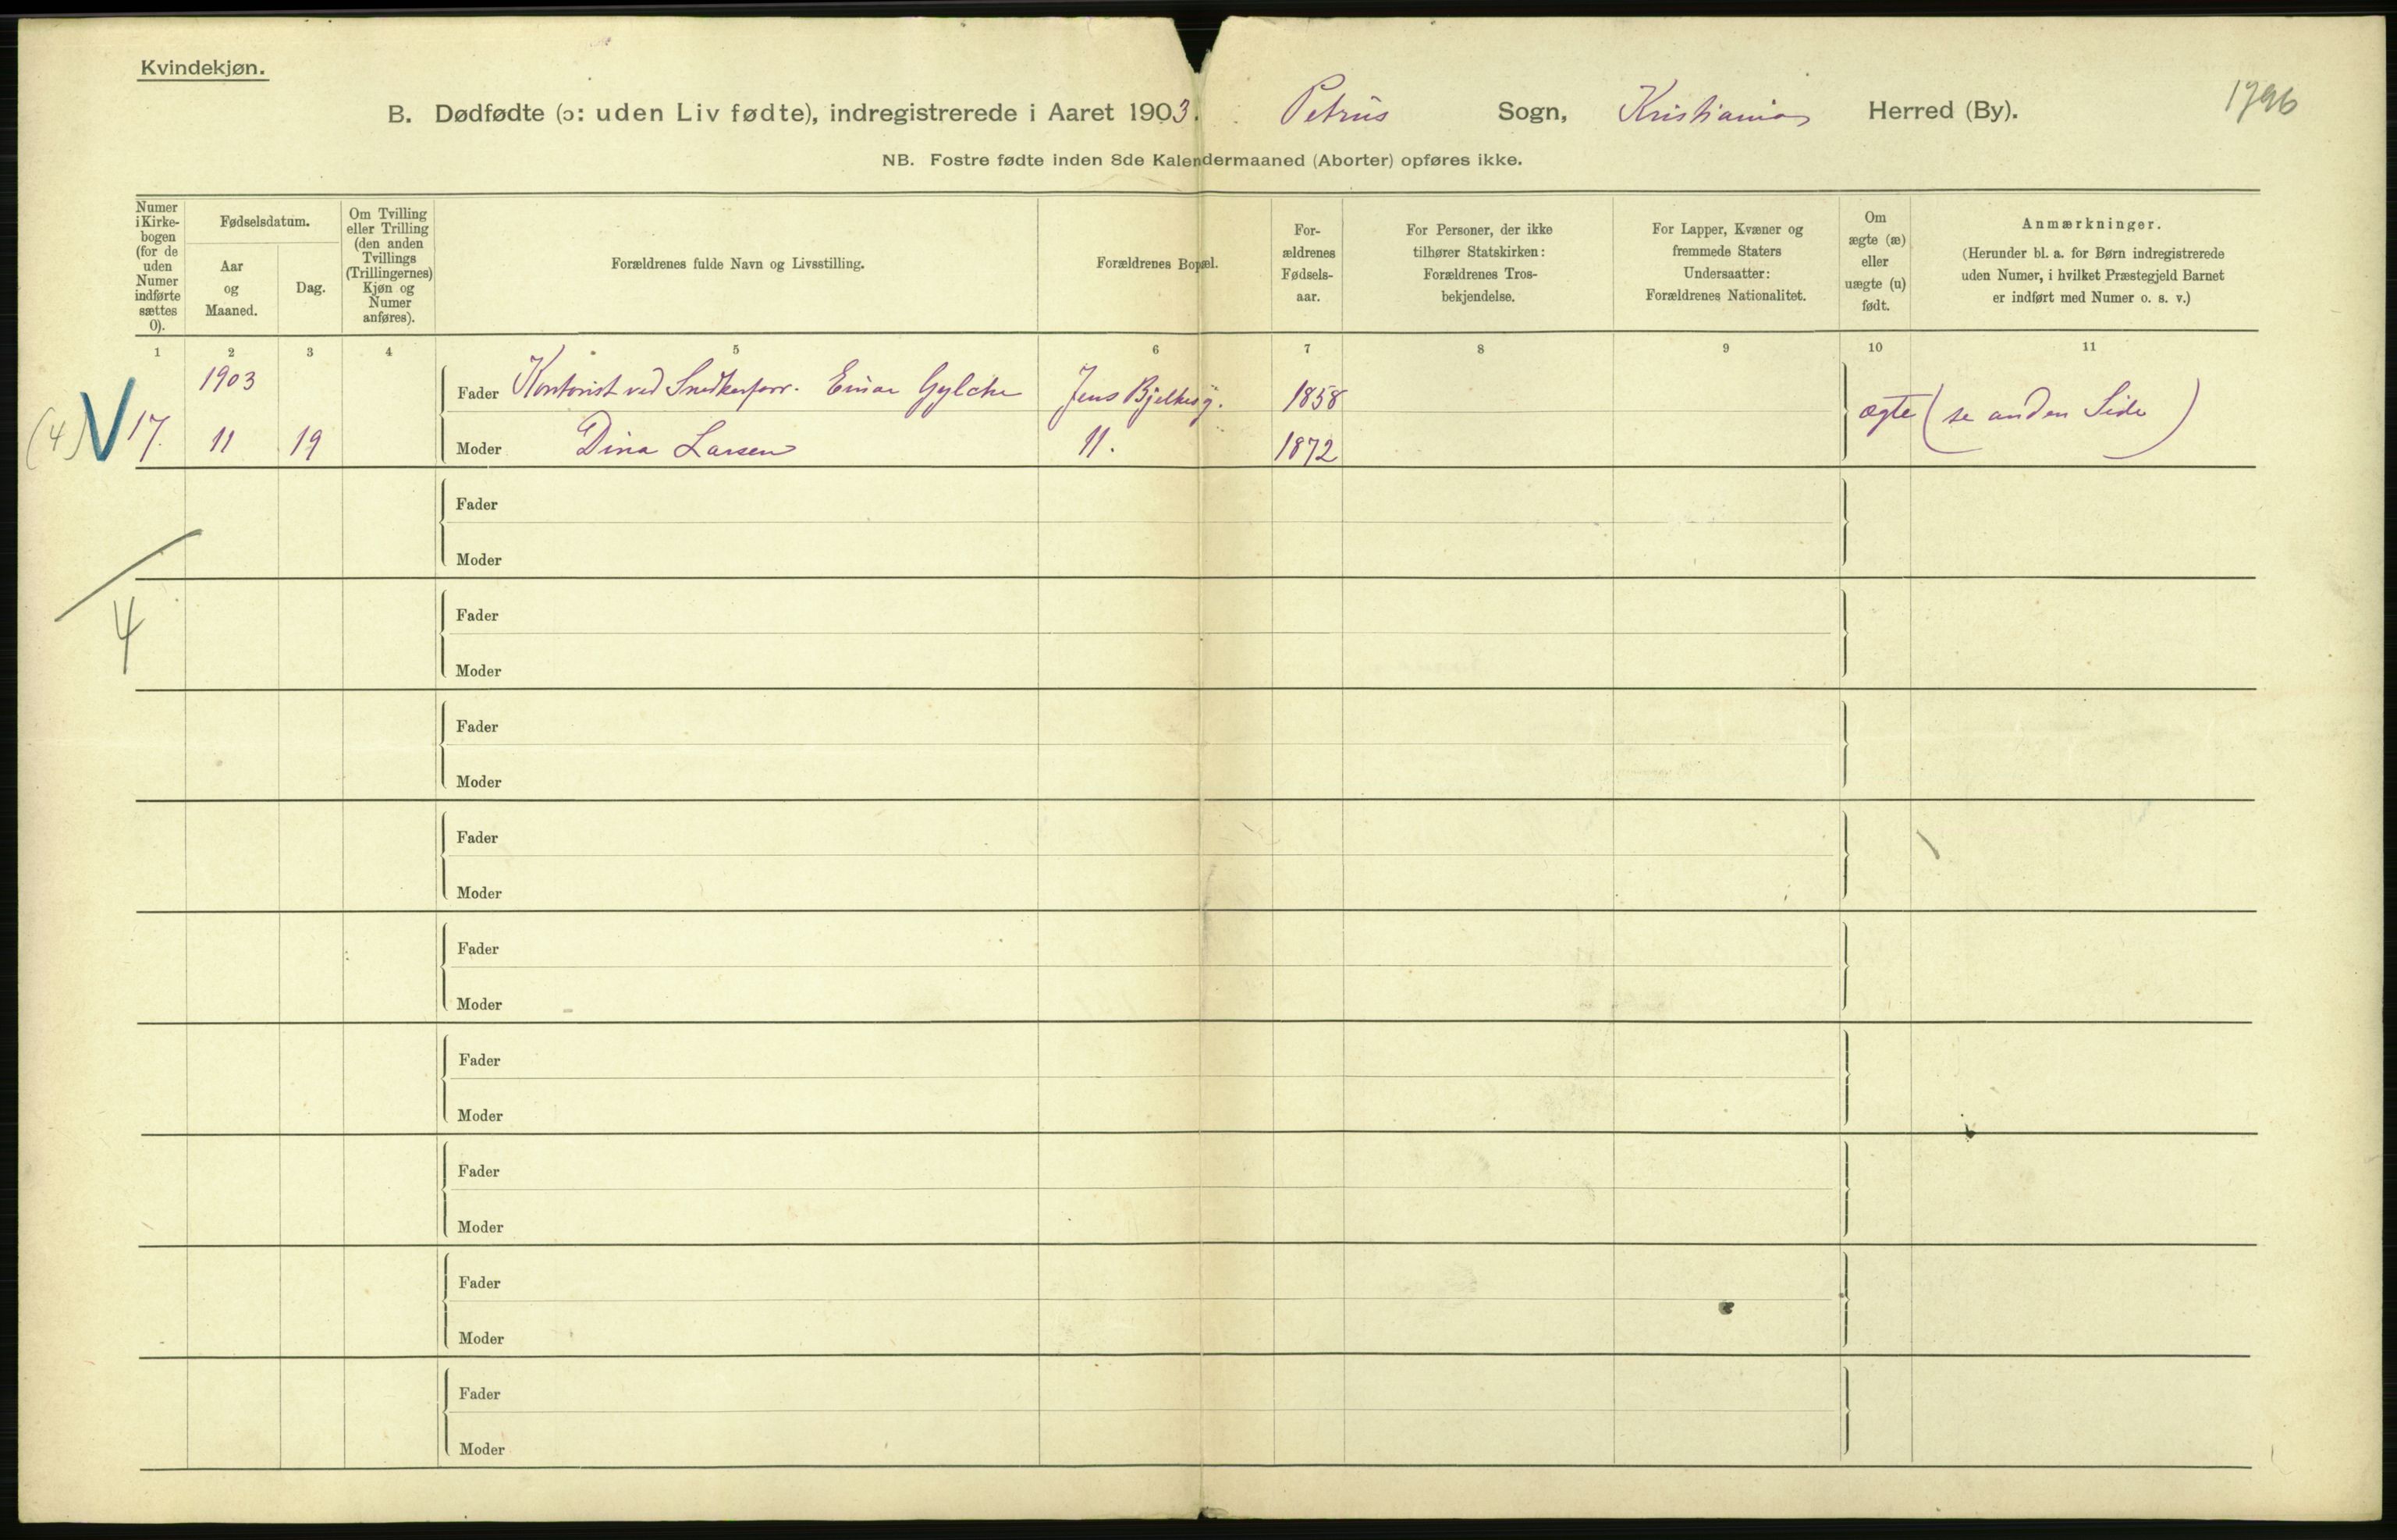 Kvindekjøn.
B. Dødfødte (ɔ: uden Liv fødte), indregistrerede i Aaret 1903. Petrus Sogn, Kristiania Herred (By).
1796
NB. Fostre fødte inden 8de Kalendermaaned (Aborter) opføres ikke.
Numer i Kirke-bogen (for de uden Numer indførte sættes 0).
Fødselsdatum.
Aar og Maaned.
Dag.
Om Tvilling eller Trilling (den anden Tvillings (Trillingernes) Kjøn og Numer anføres).
Forældrenes fulde Navn og Livsstilling.
Forældrenes Bopæl.
For-ældrenes Fødsels-aar.
For Personer, der ikke tilhører Statskirken: Forældrenes Tros-bekjendelse.
For Lapper, Kvæner og fremmede Staters Undersaatter: Forældrenes Nationalitet.
Om ægte (æ) eller uægte (u) født.
Anmærkninger.
(Herunder bl. a. for Børn indregistrerede uden Numer, i hvilket Præstegjeld Barnet er indført med Numer o. s. v.)
1 2 3 4 5 6 7 8 9 10 11
1903
Fader Kontorist ved Snedkerforr. Einar Gylche Jens Bjelkesg. 1858
ægte (se anden Side)
(4) V 17. 11 19 Moder Dina Larsen 11. 1872
Fader
Moder
4
Fader
Moder
Fader
Moder
Fader
Moder
Fader
Moder
Fader
Moder
Fader
Moder
Fader
Moder
Fader
Moder